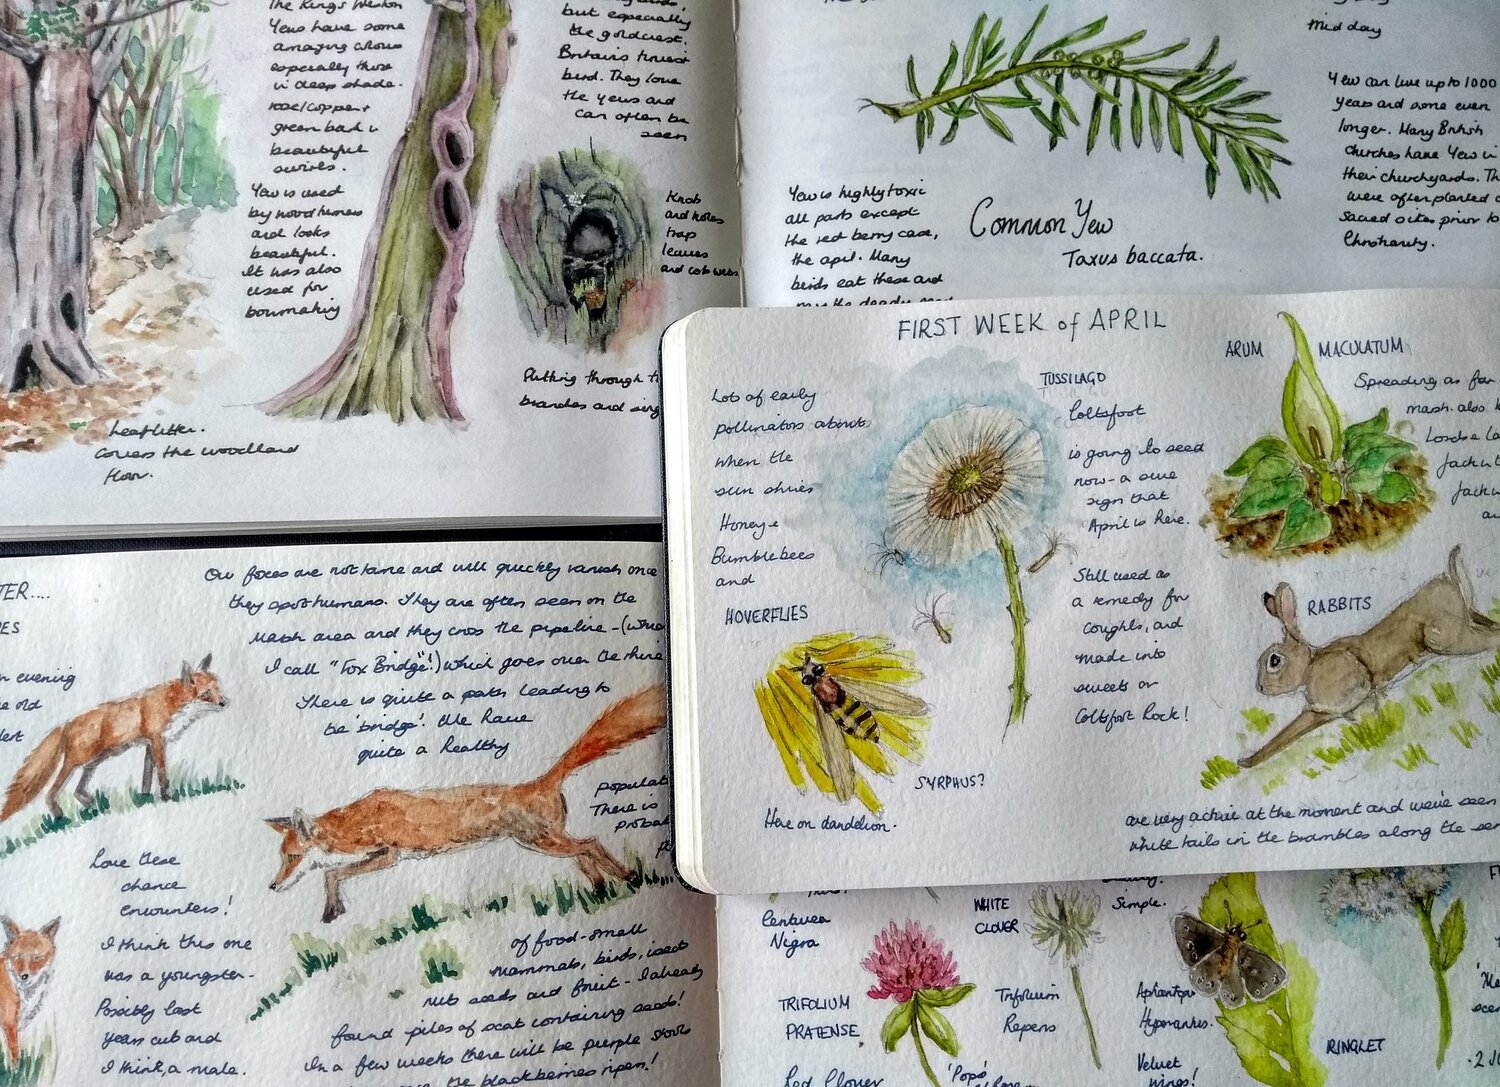 The King's Weston
Yews have some
amazing colours
especially those
in deep shade.
rose/copper +
green bark in
beautiful
swirls.
Yew is used
by wood turners
and looks
beautiful.
It was also
used for
bowmaking
leaf litter.
covers the woodland
floor.
but especially
the goldcrest.
Britain's tiniest
bird. They love
the Yews and
can often be
seen
Knobs
and holes
trap
leaves
and cobwebs
Flitting through
branches and
Mid day
Yew can live up to 1000
years and some even
longer. Many British
churches have Yew in
their churchyards.
were often planted
Sacred sites prior to
Christianity.
Yew is highly toxic
all parts except
the red berry case,
the aril. Many
birds eat these and
Common Yew
Taxus baccata.
FIRST WEEK of APRIL
Lots of early
pollinators about
when the
sun shines
Honey +
Bumblebees
and
HOVERFLIES
SYRPHUS?
Here on dandelion.
TUSSILAGO
Coltsfoot
is going to seed
now - a sure
sign that
April is here.
Still used as
a remedy for
coughs, and
made into
sweets or
Coltsfoot Rock!
ARUM MACULATUM
Spreading as far
marsh. also
RABBITS
are very active at the moment and we've seen
white tails in the brambles along the
Our foxes are not tame and will quickly vanish once
they spot humans. They are often seen on the
marsh area and they cross the pipeline -
I call "Fox Bridge"!) which goes over the rhine
There is quite a path leading to
the 'bridge'. We have
quite a healthy
There is
evening
old
Love these
chance
encounters!
I think this one
was a youngster -
Possibly last
years cub and
I think, a male.
of food - small
mammals, birds, insects
nuts seeds and fruit - I already
found piles of scat containing seeds!
In a few weeks there will be purple stools
the blackberries ripen!
Centurea
Nigra
TRIFOLIUM
PRATENSE
Red Clover
WHITE
CLOVER
Trifolium
Repens
Simple.
Aphantopus
Hyperantus.
Velvet
wings!
RINGLET